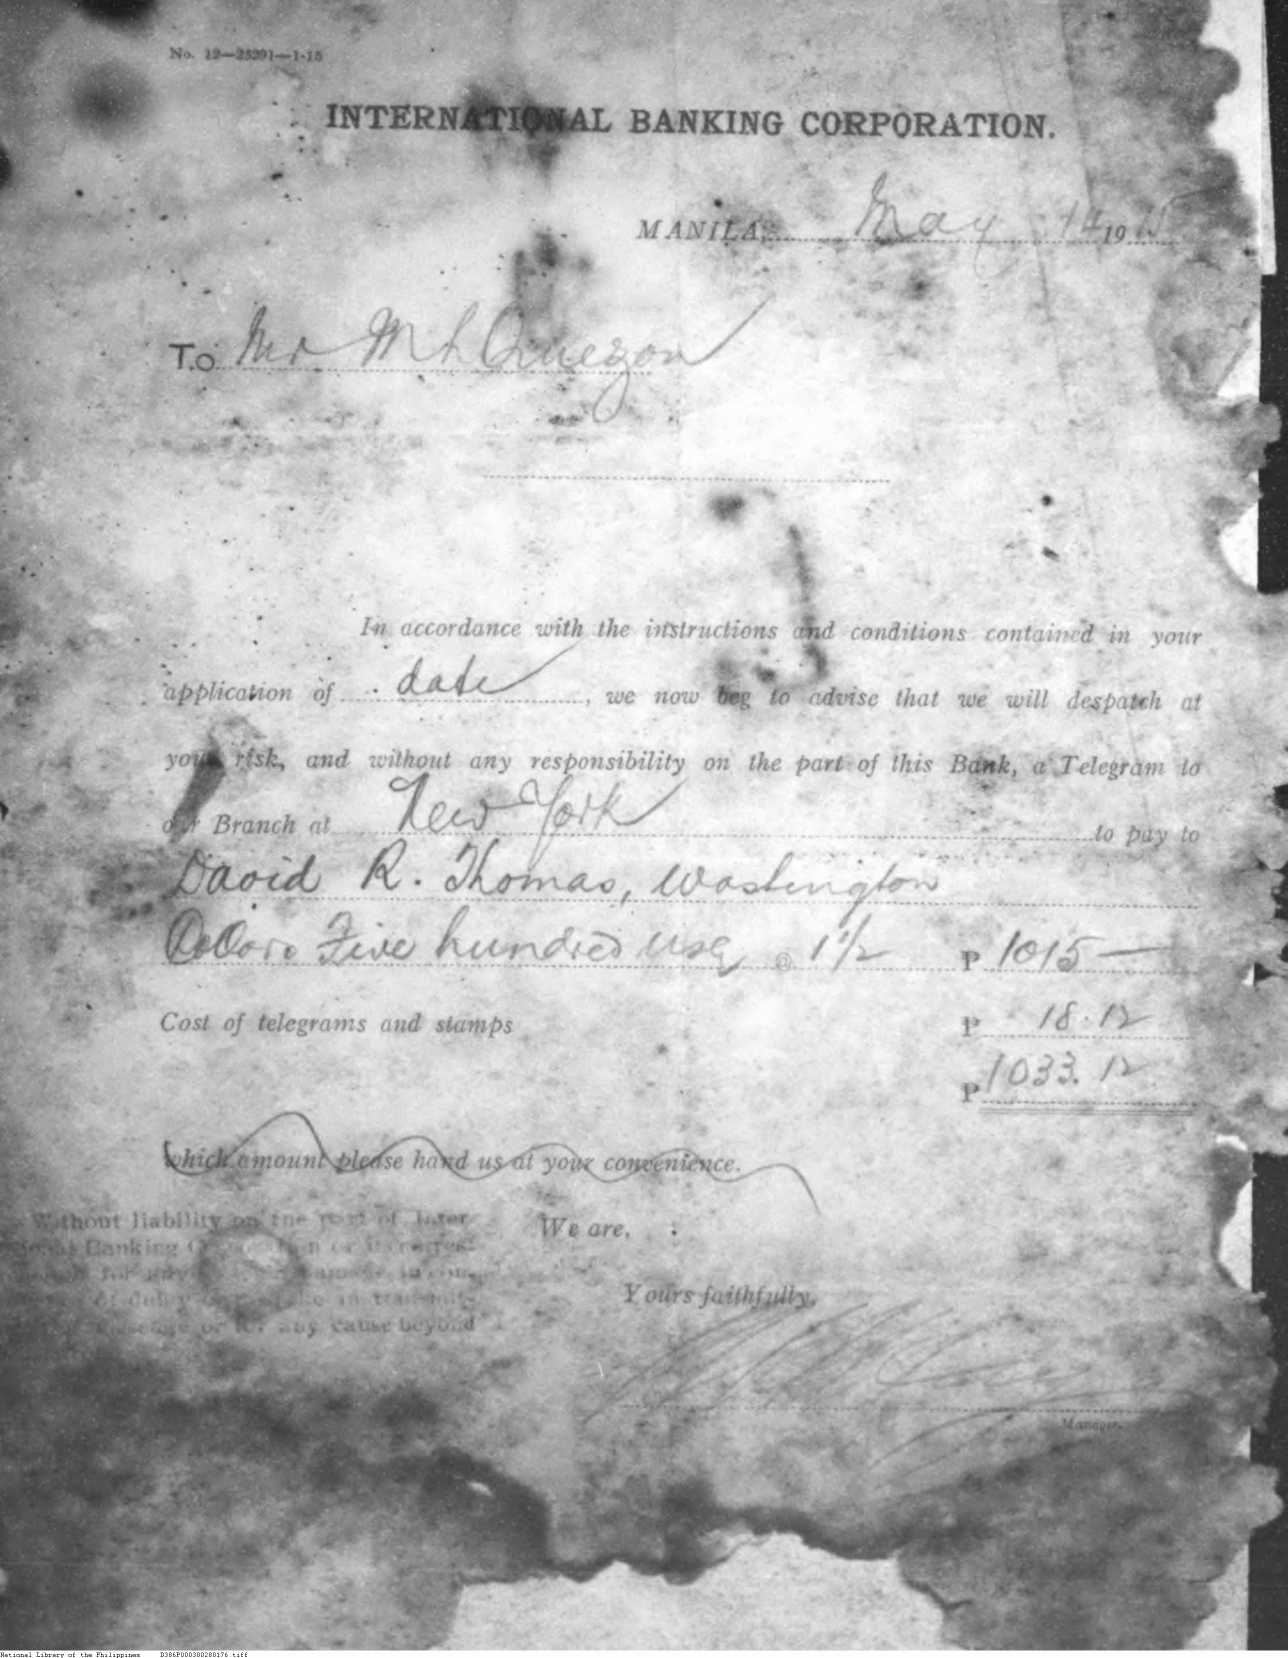 No. 12—25291—1-15
INTERNATIONAL BANKING CORPORATION.
MANILA, May 14 1915
To Mr M L Quezon
In accordance with the instructions and conditions contained in your
application of date, we now beg to advise that we will despatch at
your risk, and without any responsibility on the part of this Bank, a Telegram to
our Branch at New York to pay to
David R. Thomas, Washington
Five hundred @ 1 1/2 P 1015 —
Cost of telegrams and stamps P 18.12
P 1033.12
which amount please hand us at your convenience.
Without liability on the part of Inter-
Banking
for
of delay in transmit-
or for any cause beyond
We are,
Yours faithfully,
Manager.
National Library of the Philippines D386P000300280176.tiff